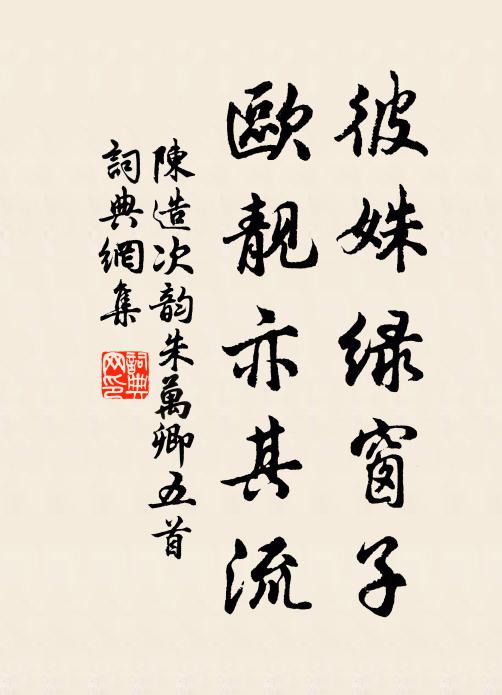 彼姝緑窗子
歐靚亦其流
陳造次韵朱萬卿五首
詞典網集
詞典网印